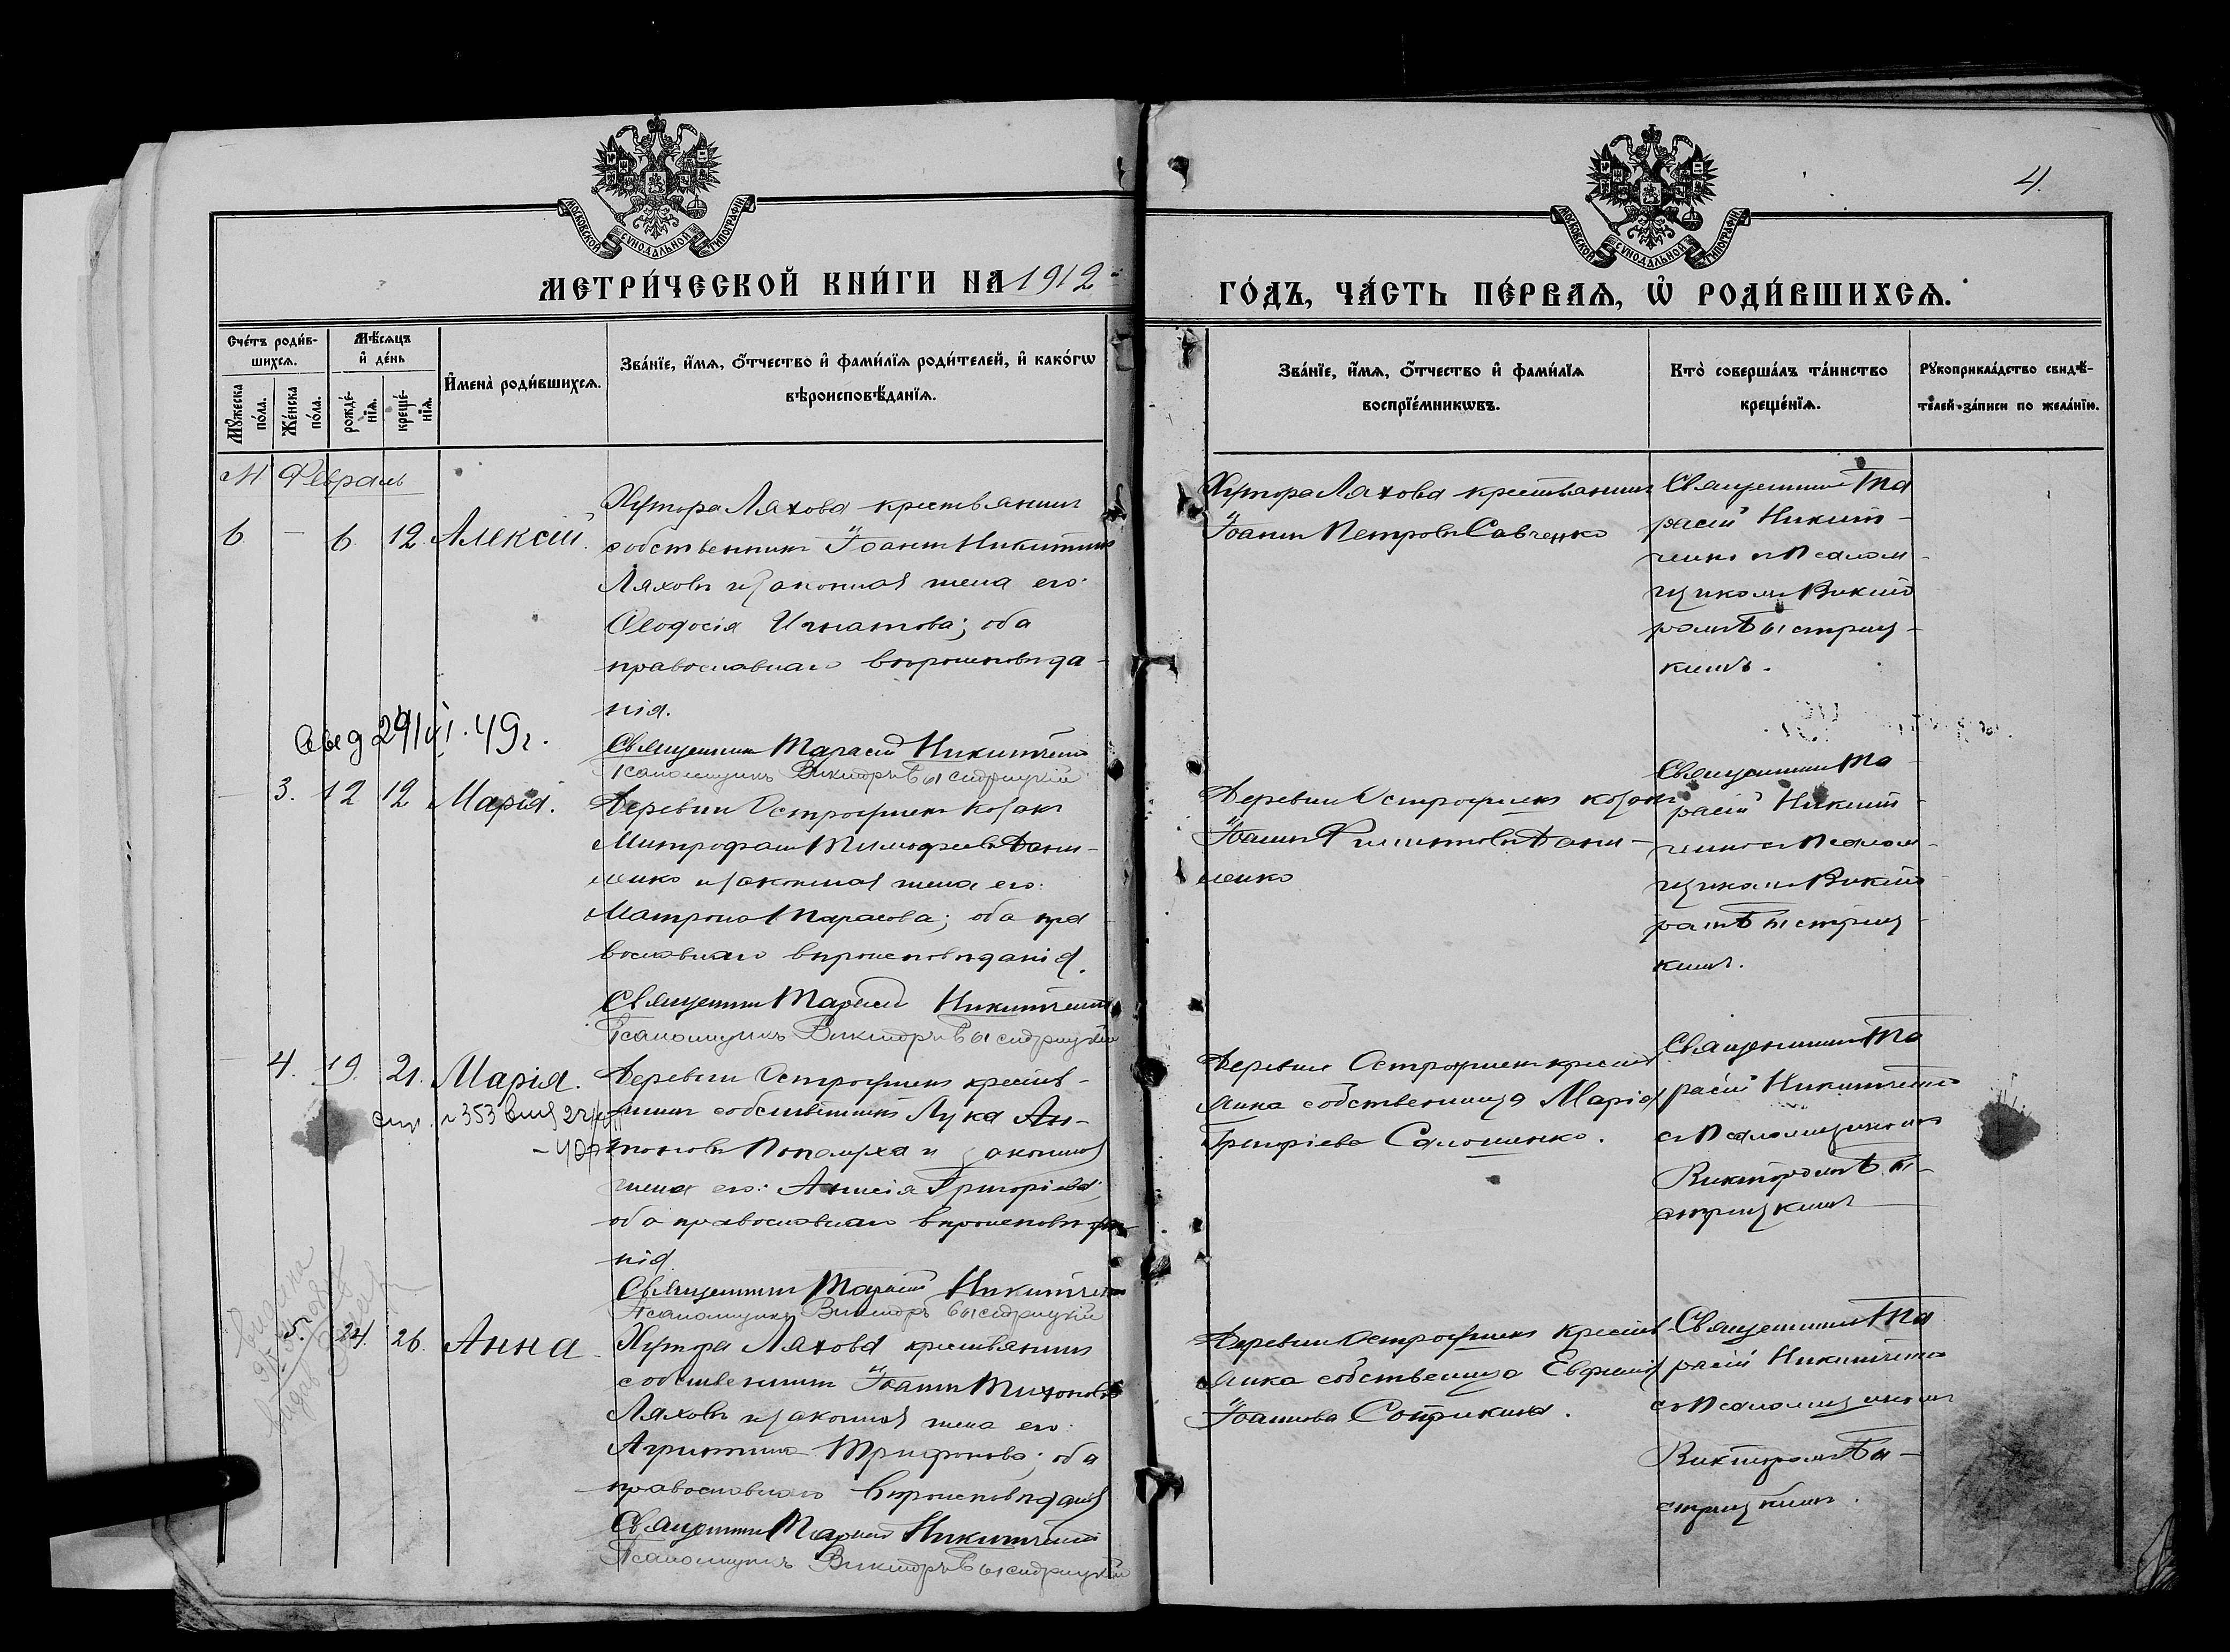 4.
МОСКОВСКОЙ СУНОДАЛЬНОЙ ТИПОГРАФІИ
МОСКОВСКОЙ СУНОДАЛЬНОЙ ТИПОГРАФІИ
МЕТРИ́ЧЕСКОЙ КНИ́ГИ НА 1912
ГО́ДЪ, ЧА́СТЬ ПЕ́РВАЯ, Ѡ҆ РОДИ́ВШИХСЯ.
Сче́тъ роди́в-
шихся.
Мѹ́жеска пола.
Же́нска по́ла.
Мѣ́сяцъ
и҆ де́нь
рожде́-
нїя.
креще́-
нїя.
И҆мена̀ роди́вшихся.
Зва́нїе, и҆́мя, ѻ҆́тчество и҆ фами́лїя роди́телей, и҆ како́гѡ
вѣроисповѣ́данїя.
Зва́нїе, и҆́мя, ѻ҆́тчество и҆ фами́лїя
воспрїе́мникѡвъ.
Кто̀ соверша́лъ та́инство
креще́нїя.
Рѹкоприкла́дство свидѣ́-
телей за́писи по жела́нїю.
М Февраль
6 - 6. 12. Алексій.
Хутора Ляхова крестьянинъ
собственникъ Іоаннъ Никитинъ
Ляховъ и законная жена его:
Ѳеодосія Игнатова; оба
православнаго вѣроисповѣда-
нія.
Священникъ Тарасій Никитченко
Псаломщикъ Викторъ Быстрицкій
Хутора Ляхова крестьянинъ
Іоаннъ Петровъ Савченко
Священникъ Та
расій Никит-
ченко съ Псалом-
щикомъ Викто
ромъ Быстриц-
кимъ.
49г.
- 3. 12 12 Марія.
Деревни Острожнен козакъ
Митрофанъ Тимофеевъ Дани-
ленко и законная жена его:
Матрона Тарасова; оба пра
вославнаго вѣроисповѣданія.
Священникъ Тарасій Никитченко
Псаломщикъ Викторъ Быстрицкій
козакъ
Іоаннъ Филипповъ Дани-
ленко
Священникъ Та
расій Никит-
ченко съ Псалом-
щикомъ Викто
ромъ Быстриц-
кимъ.
- 4. 19. 21. Марія.
№353
крестья-
нинъ собственникъ Лука Ан-
тоновъ и законная
жена его: Анисія Григоріева;
оба православнаго вѣроисповѣда-
нія.
Священникъ Тарасій Никитченко
Псаломщикъ Викторъ Быстрицкій
янка собственница Марія
Григоріева
Священникъ Та
расій Никитченко
съ Псаломщикомъ
Викторомъ Бы-
стрицкимъ
5. 24. 26. Анна
Хутора Ляхова крестьянинъ
собственникъ Іоаннъ Тихоновъ
Ляховъ и законная жена его:
Агриппина Трифонова; оба
православнаго вѣроисповѣданія
Священникъ Тарасій Никитченко
Псаломщикъ Викторъ Быстрицкій
янка собственница Евфимія
Іоаннова
Священникъ Та
расій Никитченко
съ Псаломщикомъ
Викторомъ Бы-
стрицкимъ.